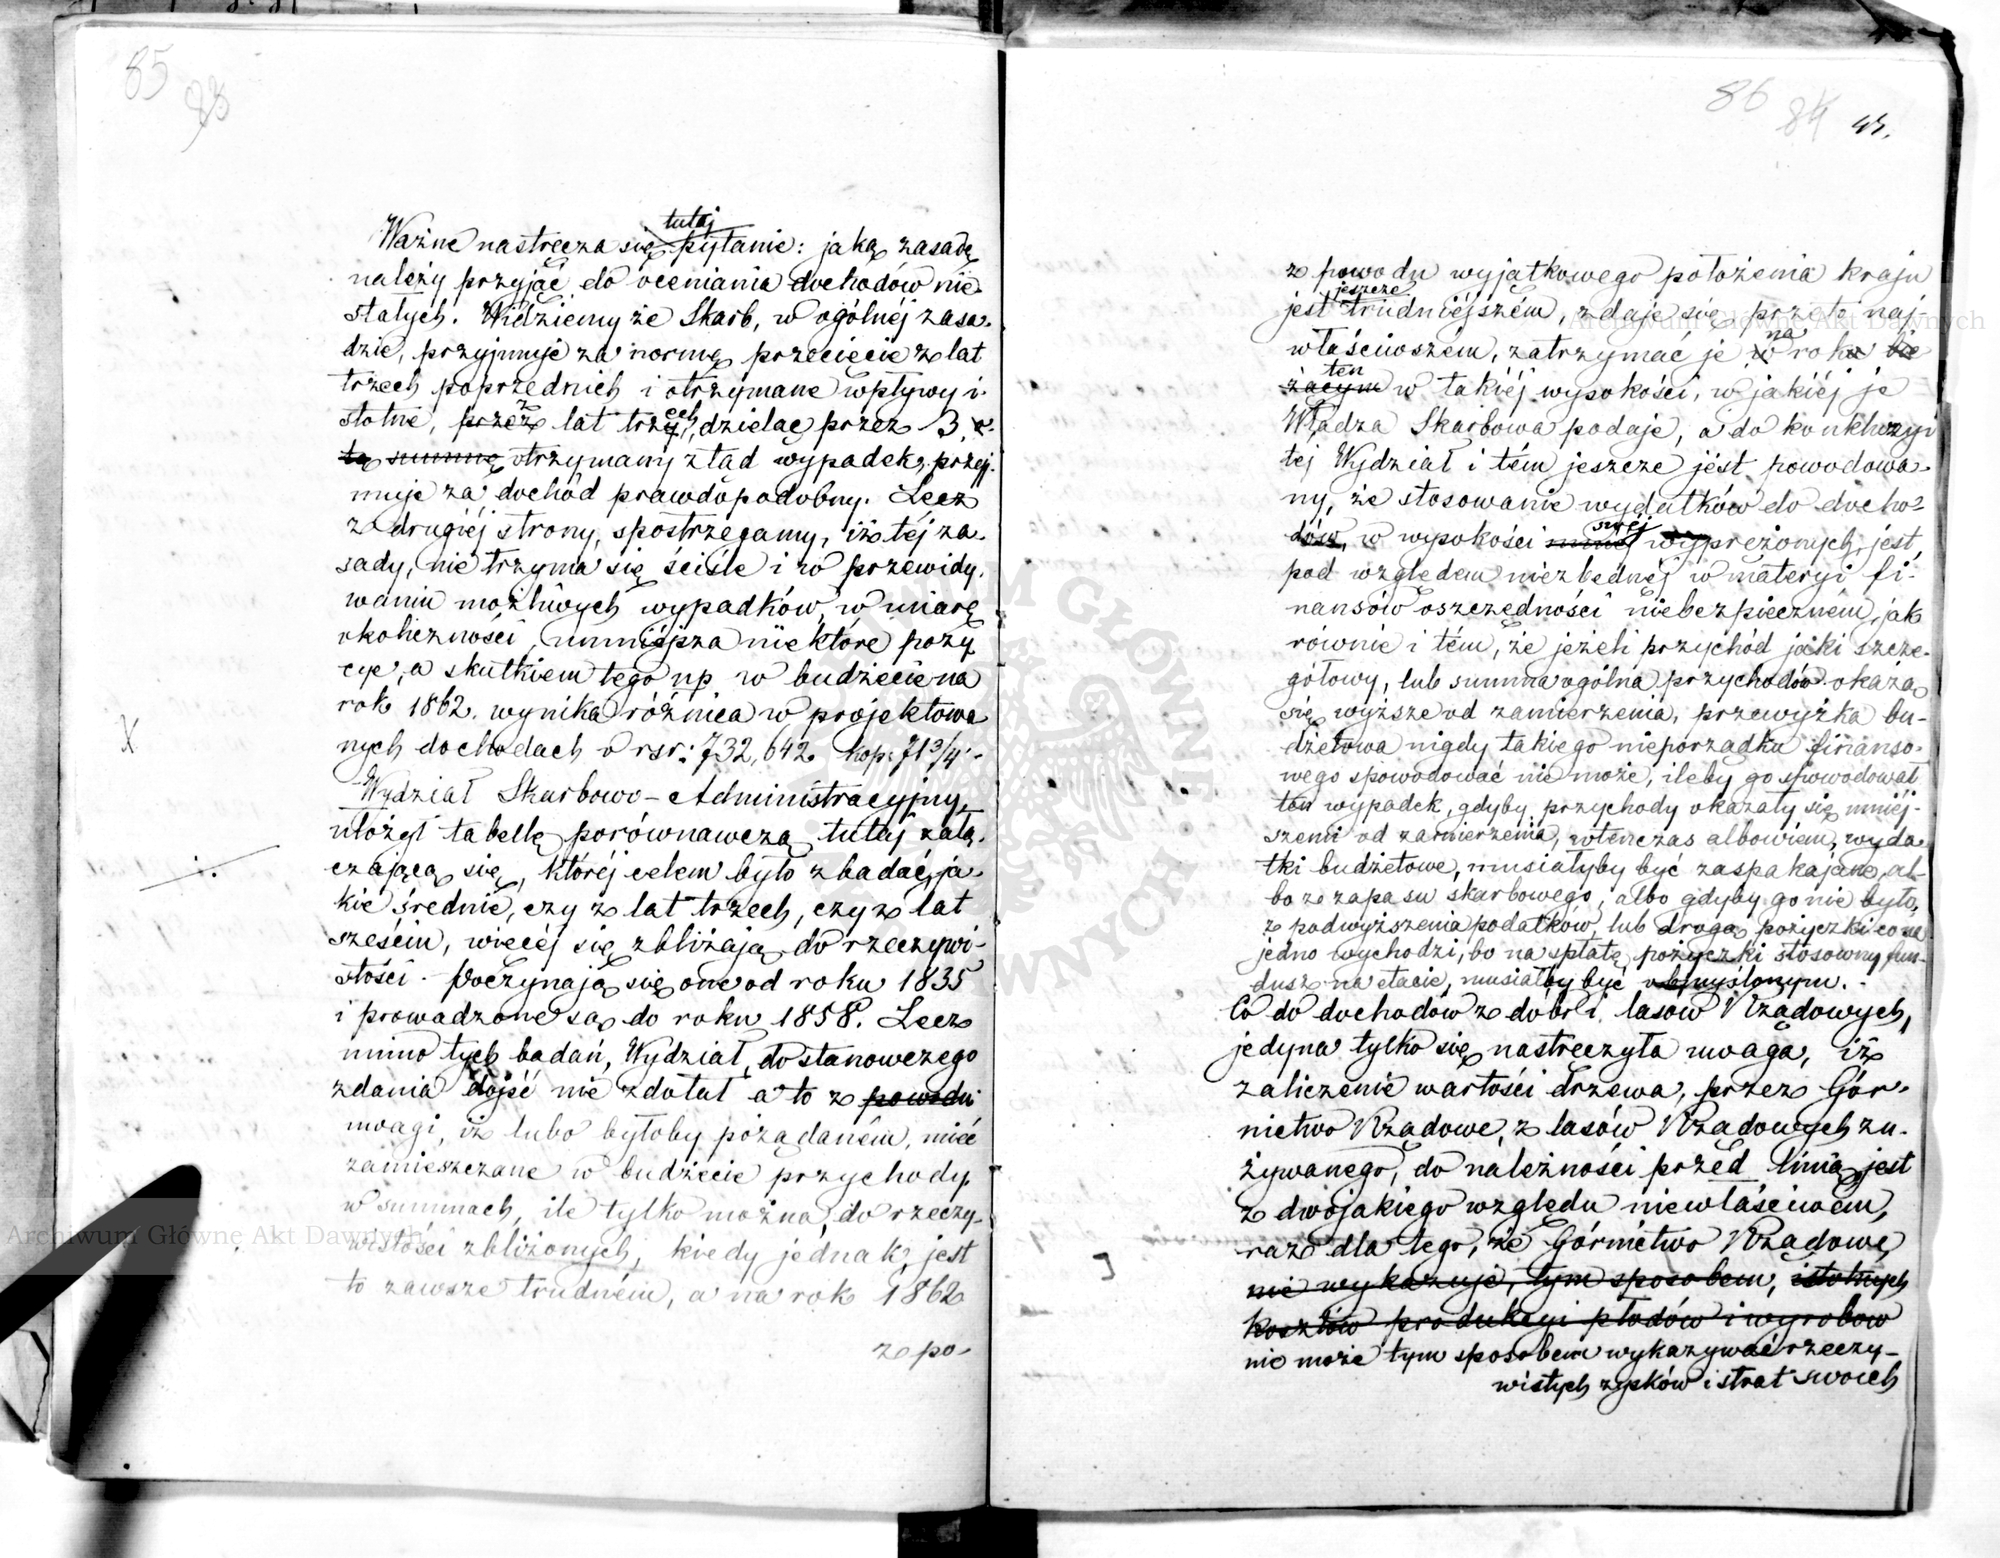 85
83
tutaj
Ważne nastręcza się pytanie: jaką zasadę
należy przyjąć do oceniania dochodów nie-
stałych. Widziemy że Skarb, w ogólnéj zasa-
dzie, przyjmuje za normę przecięcie z lat
trzech poprzednich i otrzymane wpływy i-
stotne, przez z lat trzech, dzieląc przez 3,
tę summę otrzymany ztąd wypadek, przyj-
muje za dochód prawdopodobny. Lecz
z drugiéj strony, spostrzegamy, iż téj za-
sady, nie trzyma się ściśle i w przewidy-
waniu możliwych wypadków, w miarę
okoliczności, umniéjsza niektóre pozy
cye, a skutkiem tego np w budżecie na
rok 1862. wynika różnica w projektowa
nych dochodach o rsr: 732,642 kop: 71 3/4.
X
Wydział Skarbowo-Administracyjny,
ułożył tabellę porównawczą tutaj załą-
czającą się, któréj celem było zbadać, ja-
kie średnie, czy z lat trzech, czy z lat
sześciu, więcéj się zbliżają do rzeczywi-
stości. Poczynają się one od roku 1835
i prowadzone są do roku 1858. Lecz
mimo tych badań, Wydział, do stanowczego
zdania dojść nie zdołał a to z powodu
uwagi, iż lubo byłoby pożądaném, mieć
zamieszczane w budżecie przychody
w summach, ile tylko można, do rzeczy-
wistości zbliżonych, kiedy jednak, jest
to zawsze trudném, a na rok 1862
z po-
86
84
43.
z powodu wyjątkowego położenia kraju
jeszcze
jest trudniéjszém, zdaje się przeto naj-
na
właściwszem, zatrzymać je w roku bie
ten
żącym w takiéj wysokości, w jakiéj je
Władza Skarbowa podaje, a do konkluzyi
téj Wydział i tém jeszcze jést powodowa-
ny, że stosowanie wydatków do docho-
swéj
dów, w wysokości wyprężonych, jést,
pod względem niezbędnéj w materyi fi-
nansów oszczędności niebezpieczném, jak
równie i tém, że jeżeli przychód jaki szcze-
gółowy, lub summa ogólna przychodów okażą
się wyższe od zamierzenia, przewyżka bu-
dżetowa nigdy takiego nieporządku finanso-
wego spowodować nie może, ileby go spowodował
ten wypadek, gdyby przychody okazały się mniéj-
szemi od zamierzenia, wtenczas albowiem, wyda
tki budżetowe, musiałyby być zaspakajane, al-
bo z zapasu skarbowego, albo gdyby go nie było,
z podwyższenia podatków, lub drogą pożyczki co na
jedno wychodzi, bo na spłatę pożyczki stósowny fun-
dusz na etacie, musiałby być obmyślonym.
Co do dochodów z dóbr i lasów Rządowych,
jedyna tylko się nastręczyła uwaga, iż
zaliczenie wartości drzewa, przez Gór-
nictwo Rządowe, z lasów Rządowych zu-
żywanego, do należności przed linią, jest
z dwojakiego względu niewłaściwém,
raz dla tego, że Górnictwo Rządowe
nie wykazuje, tym sposobem, istotnych
kosztów produkcyi płodów i wyrobów
nie może tym sposobem wykazywać rzeczy-
wistych zysków i strat swoich
Archiwum Główne Akt Dawnych
Archiwum Główne Akt Dawnych